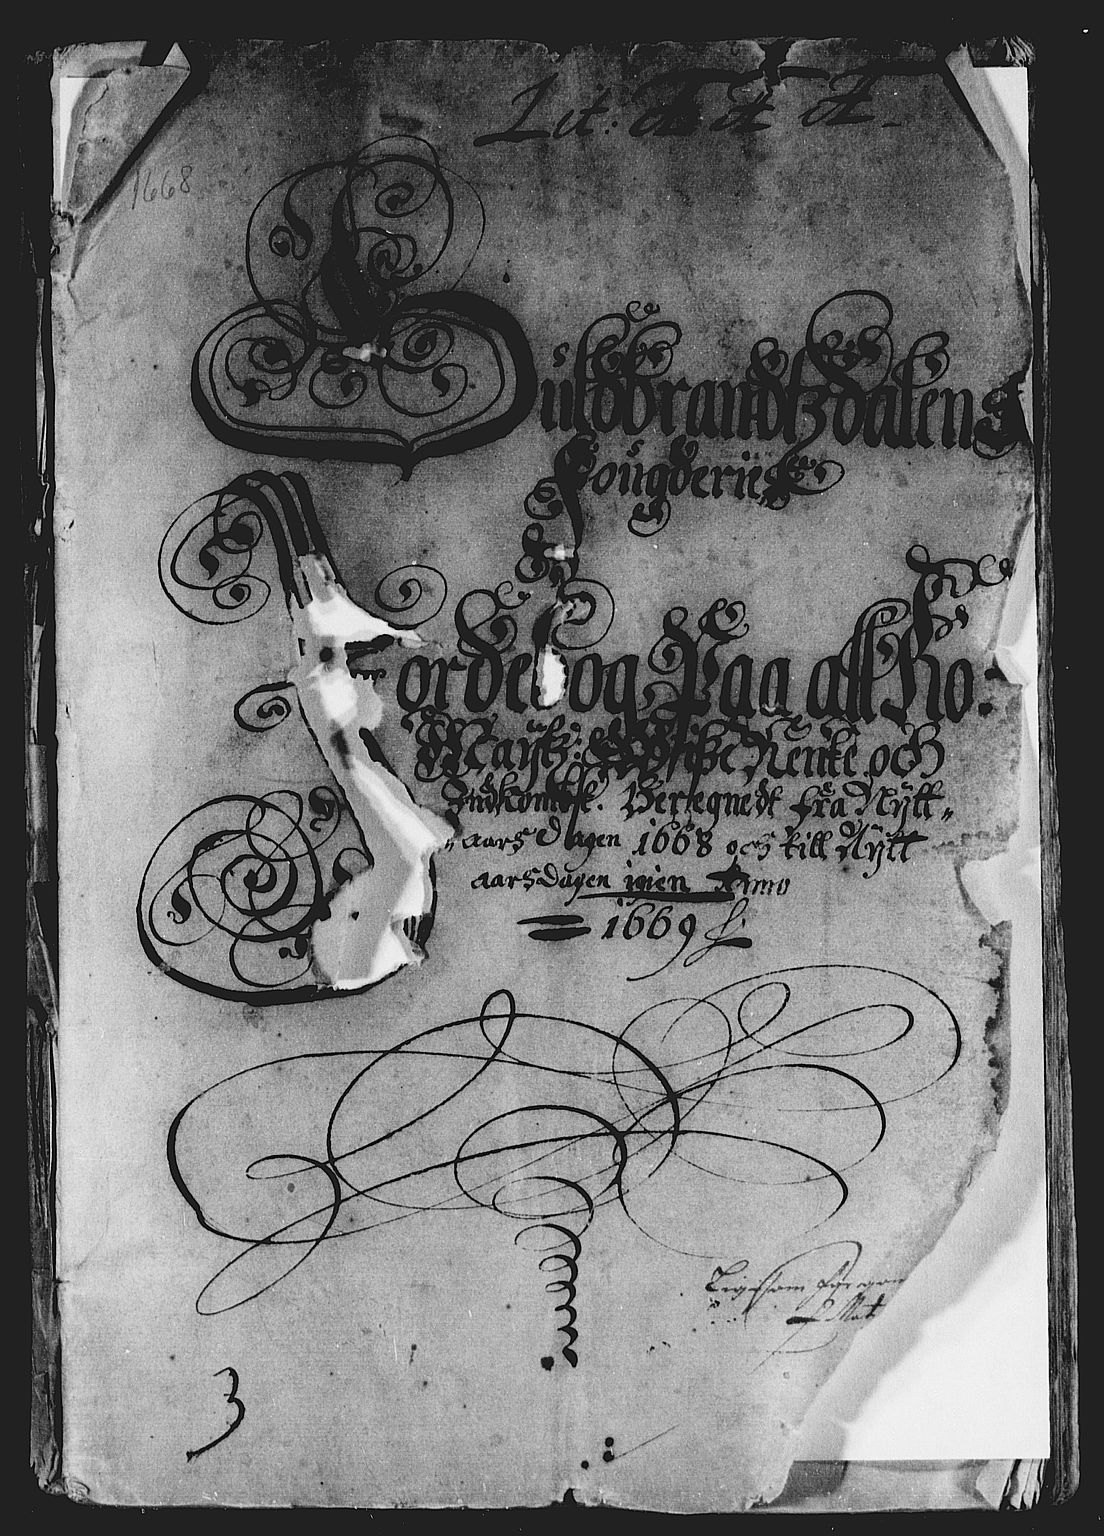 Lit: A A A
1668
Guldbrandtzdalens
Fougderie
Jordebog Paa all Ko:
Maÿtz: Wisse Rente och
Indkombst. Beregnedt fra Nÿtt„
„aarsdagen 1668 och till Nÿtt
aarsdagen igien Anno
1669
Ligesom
3